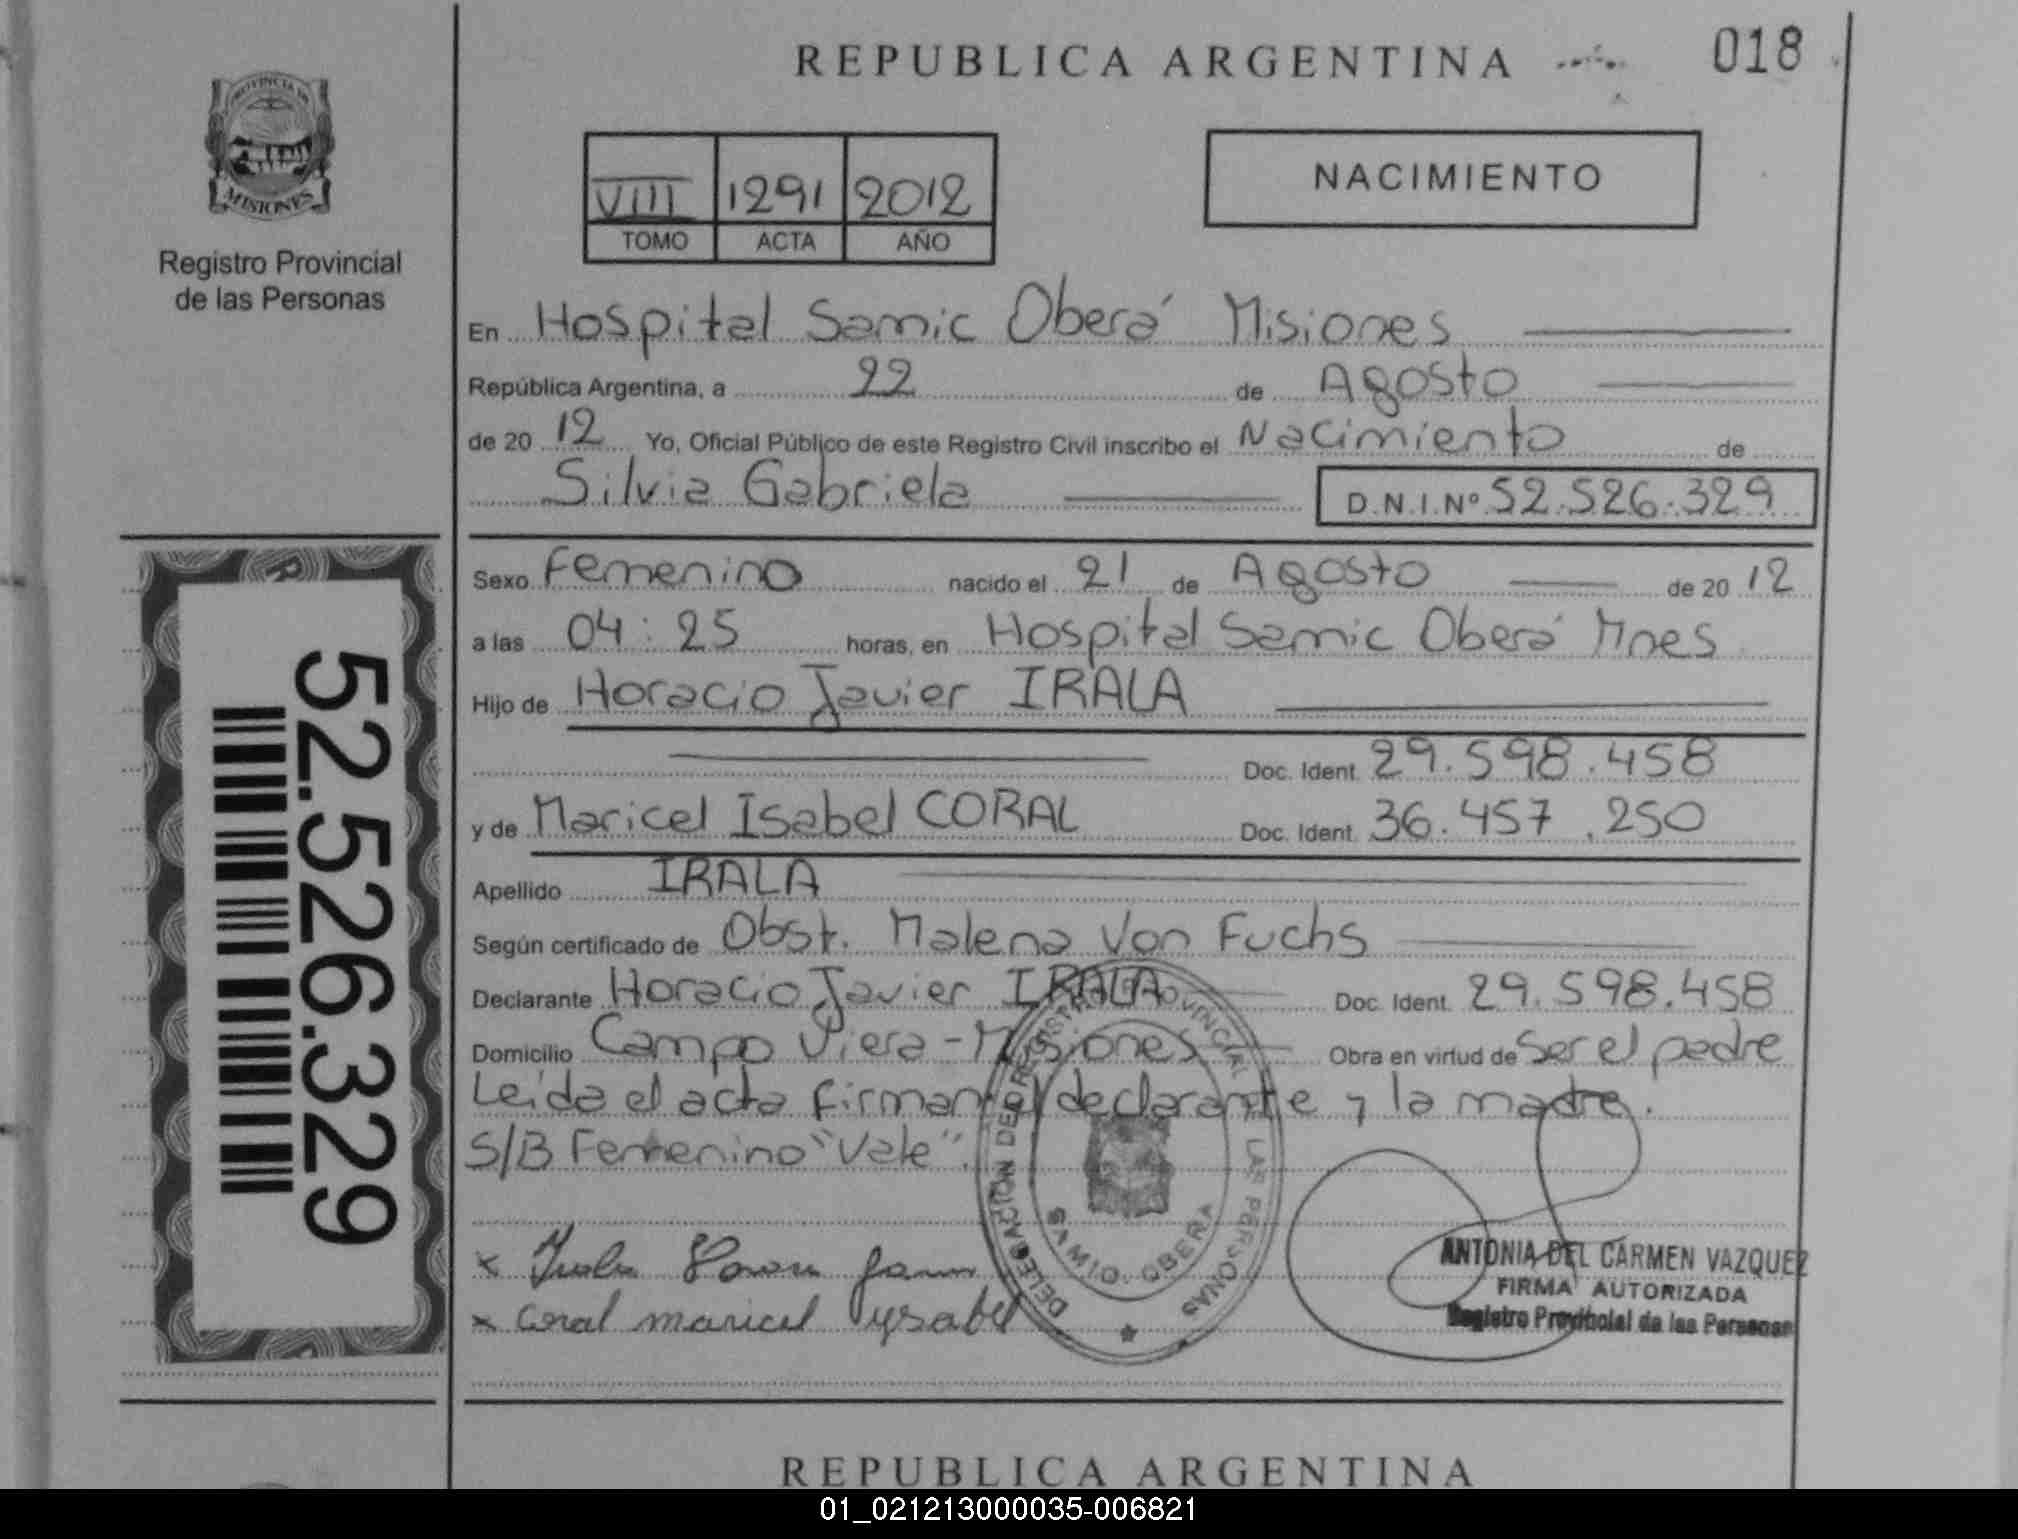 REPUBLICA ARGENTINA
018
PROVINCIA DE
MISIONES
Registro Provincial
de las Personas
VIII 1291 2012
TOMO ACTA AÑO
NACIMIENTO
En Hospital Samic Oberá Misiones
República Argentina, a 22 de Agosto
de 20 12 Yo, Oficial Público de este Registro Civil inscribo el Nacimiento de
Silvia Gabriela D.N.I.Nº 52.526.329
Sexo Femenino nacido el 21 de Agosto de 20 12
a las 04:25 horas, en Hospital Samic Oberá Mnes
Hijo de Horacio Javier IRALA
Doc. Ident. 29.598.458
y de Maricel Isabel CORAL Doc. Ident. 36.457.250
Apellido IRALA
Según certificado de Obst. Malena Von Fuchs
Declarante Horacio Javier IRALA Doc. Ident. 29.598.458
Domicilio Campo Viera - Misiones Obra en virtud de Ser el padre
Leida el acta firman el declarante y la madre.
S/B Femenino "Vale".
x Irala Horacio
x Coral maricel ysabel
DELEGACION DEL REGISTRO PROVINCIAL DE LAS PERSONAS
SAMIC. OBERA
ANTONIA DEL CARMEN VAZQUEZ
FIRMA AUTORIZADA
Registro Provincial de las Personas
52.526.329
REPUBLICA ARGENTINA
01_021213000035-006821